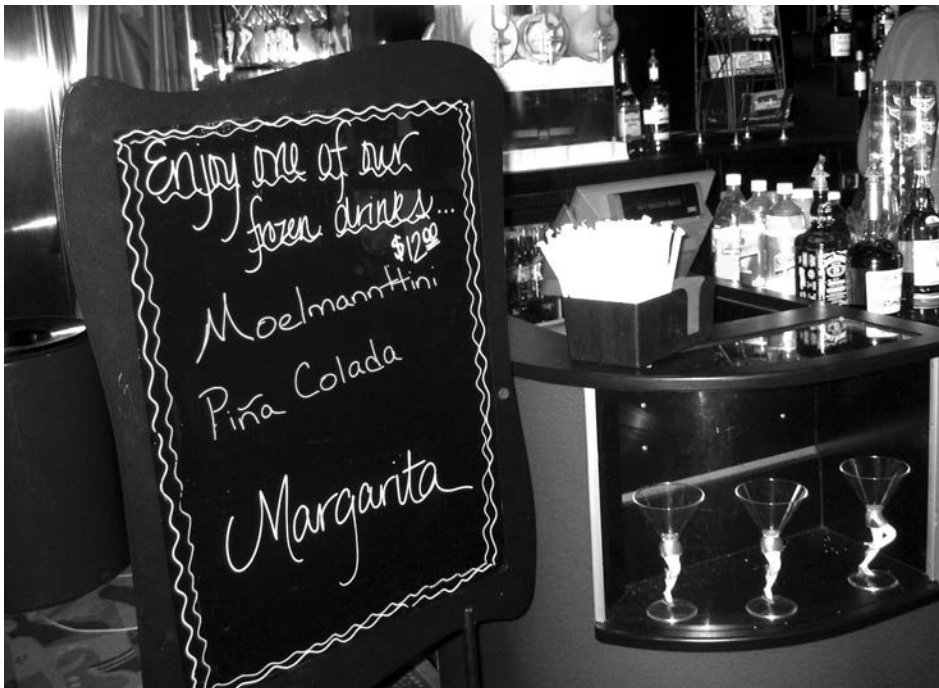 Enjoy one of our
frozen drinks...
$12.00
Moelmannttini
Piña Colada
Margarita